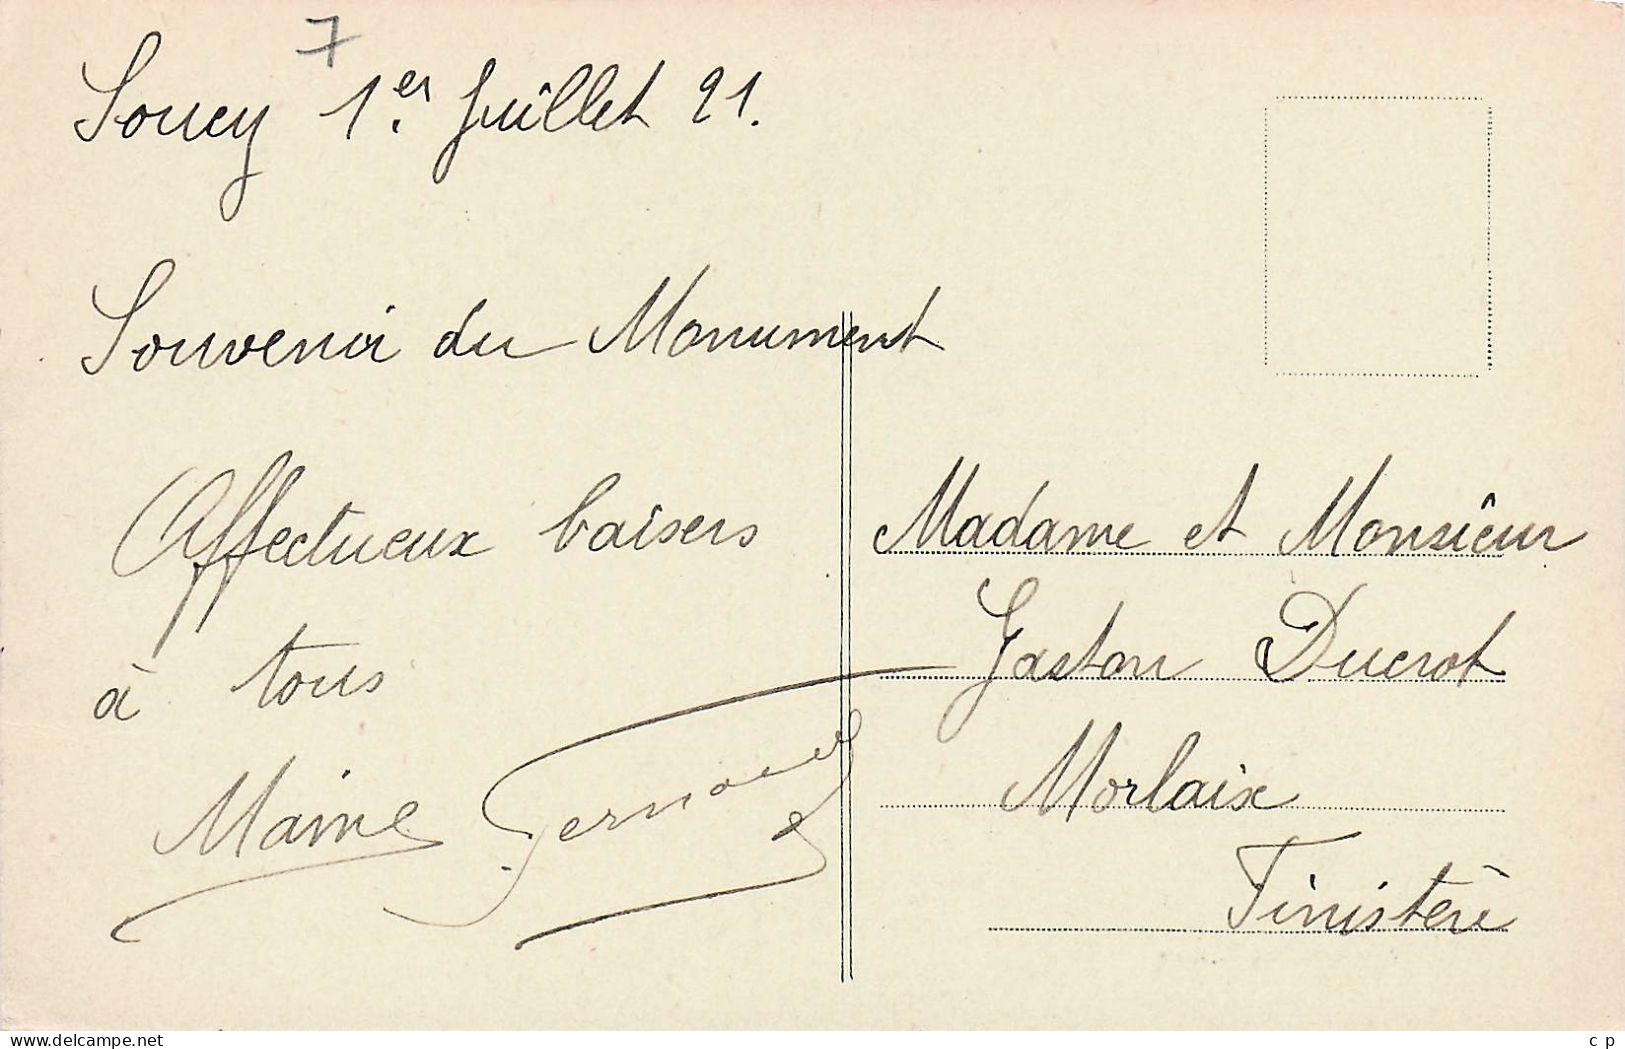 7
Soucy 1er Juillet 21.
Souvenir du Monument
Affectueux baisers
à tous
Fernand
Madame et Monsieur
Gaston Ducrot
Morlaix
Finistère
delcampe.net
c p